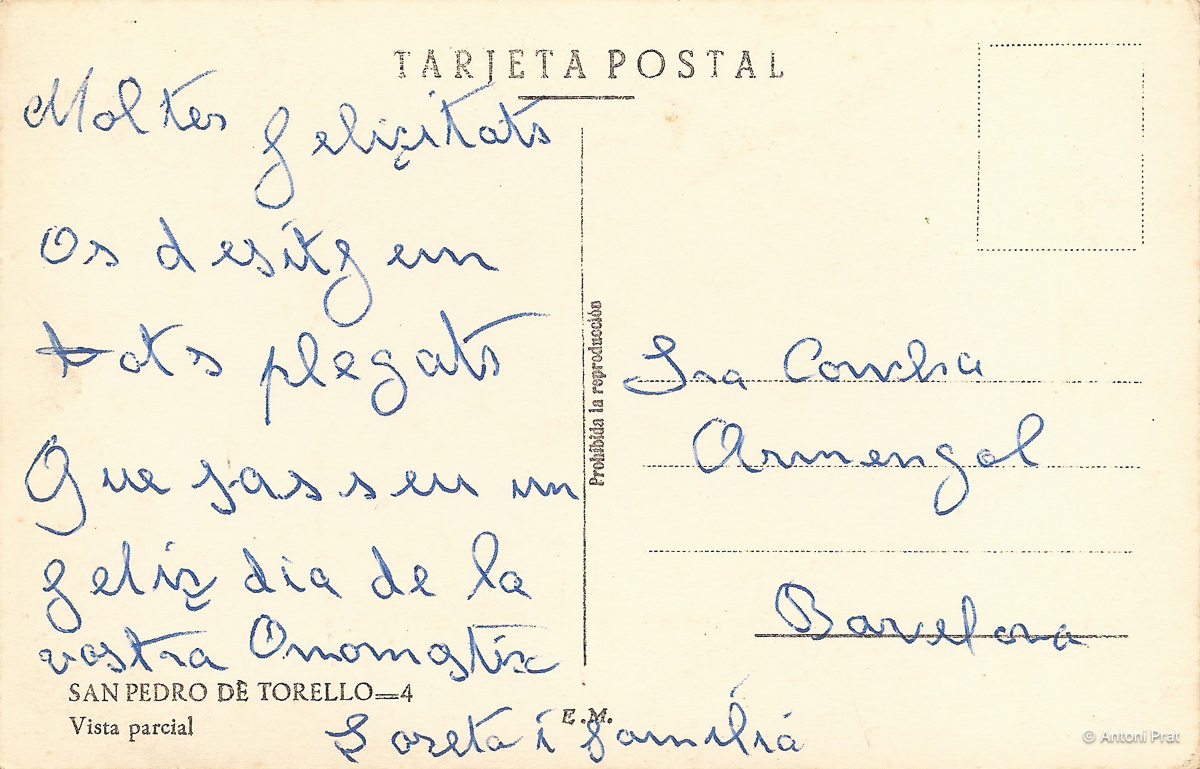 TARJETA POSTAL
Moltes feliçitats
Os desitgem
tots plegats
Que passeu un
feliz dia de la
vostra Onomastix
SAN PEDRO DE TORELLO=4
Vista parcial
Loreta i família
E. M.
Prohibida la reproducción
Sra Concha
Armengol
Barcelona
© Antoni Prat